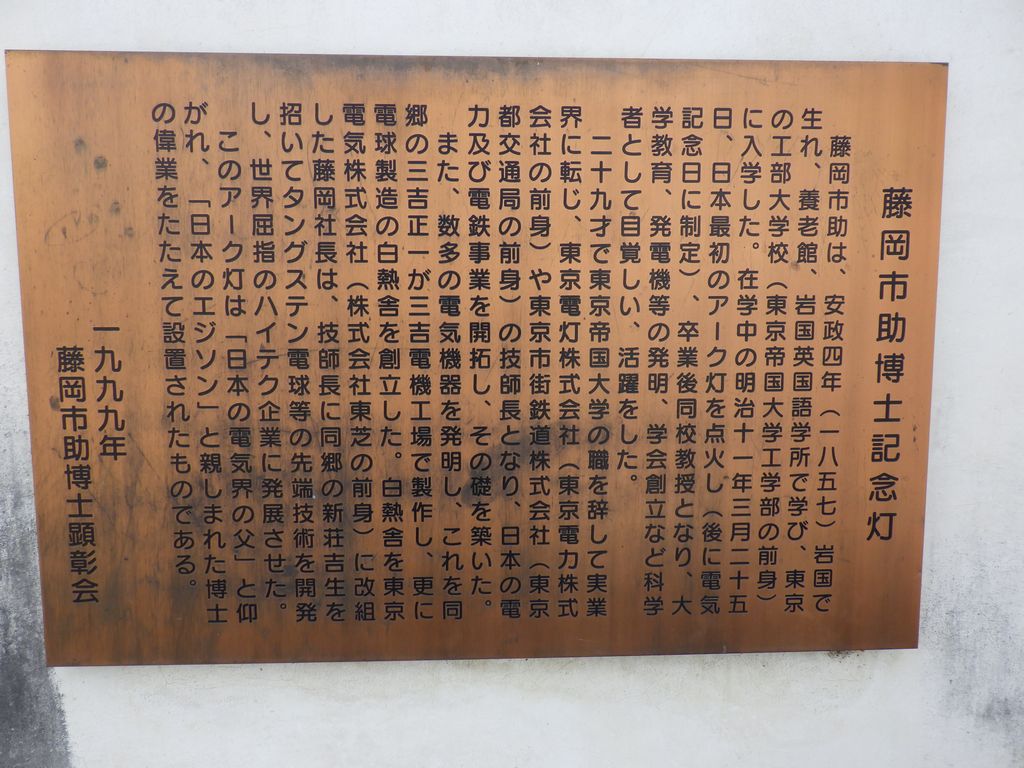 藤岡市助博士記念灯
藤岡市助は、安政四年（一八五七）岩国で
生れ、養老館、岩国英国語学所で学び、東京
の工部大学校（東京帝国大学工学部の前身）
に入学した。在学中の明治十一年三月二十五
日、日本最初のアーク灯を点火し（後に電気
記念日に制定）、卒業後同校教授となり、大
学教育、発電機等の発明、学会創立など科学
者として目覚しい、活躍をした。
二十九才で東京帝国大学の職を辞して実業
界に転じ、東京電灯株式会社（東京電力株式
会社の前身）や東京市街鉄道株式会社（東京
都交通局の前身）の技師長となり、日本の電
力及び電鉄事業を開拓し、その礎を築いた。
また、数多の電気機器を発明し、これを同
郷の三吉正一が三吉電機工場で製作し、更に
電球製造の白熱舎を創立した。白熱舎を東京
電気株式会社（株式会社東芝の前身）に改組
した藤岡社長は、技師長に同郷の新荘吉生を
招いてタングステン電球等の先端技術を開発
し、世界屈指のハイテク企業に発展させた。
このアーク灯は「日本の電気界の父」と仰
がれ、「日本のエジソン」と親しまれた博士
の偉業をたたえて設置されたものである。
一九九九年
藤岡市助博士顕彰会